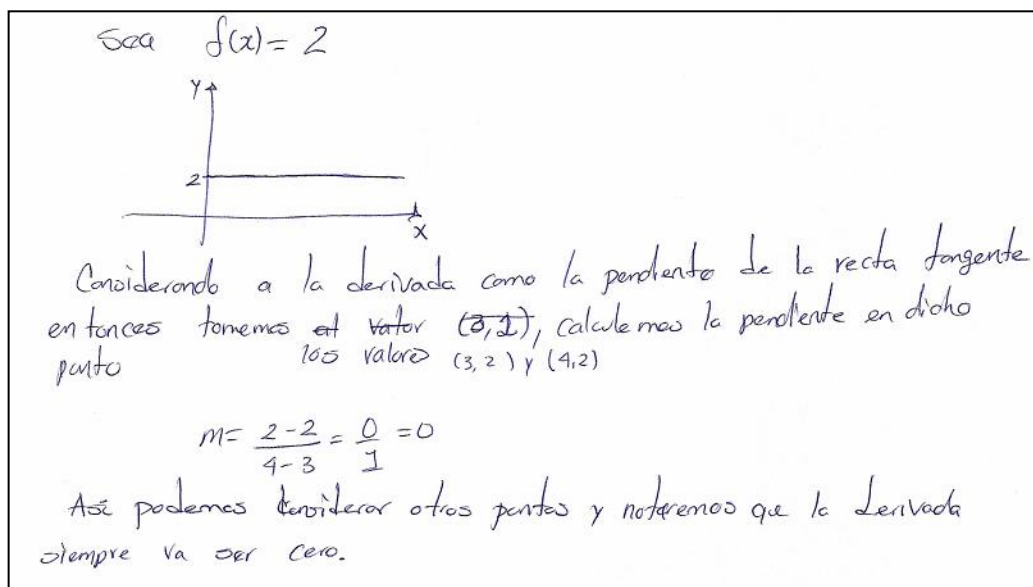 Sea f(x) = 2
Y
2
X
Considerando a la derivada como la pendiente de la recta tangente
entonces tomemos el valor (3,2), calculemos la pendiente en dicho
punto los valores (3,2) y (4,2)
m = 2-2 / 4-3 = 0/1 = 0
Así podemos considerar otros puntos y notaremos que la derivada
siempre va ser cero.